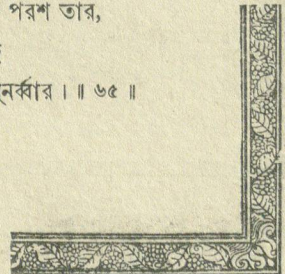 পরশ তার,
নের্ব্বার । ॥ ৬৫ ॥